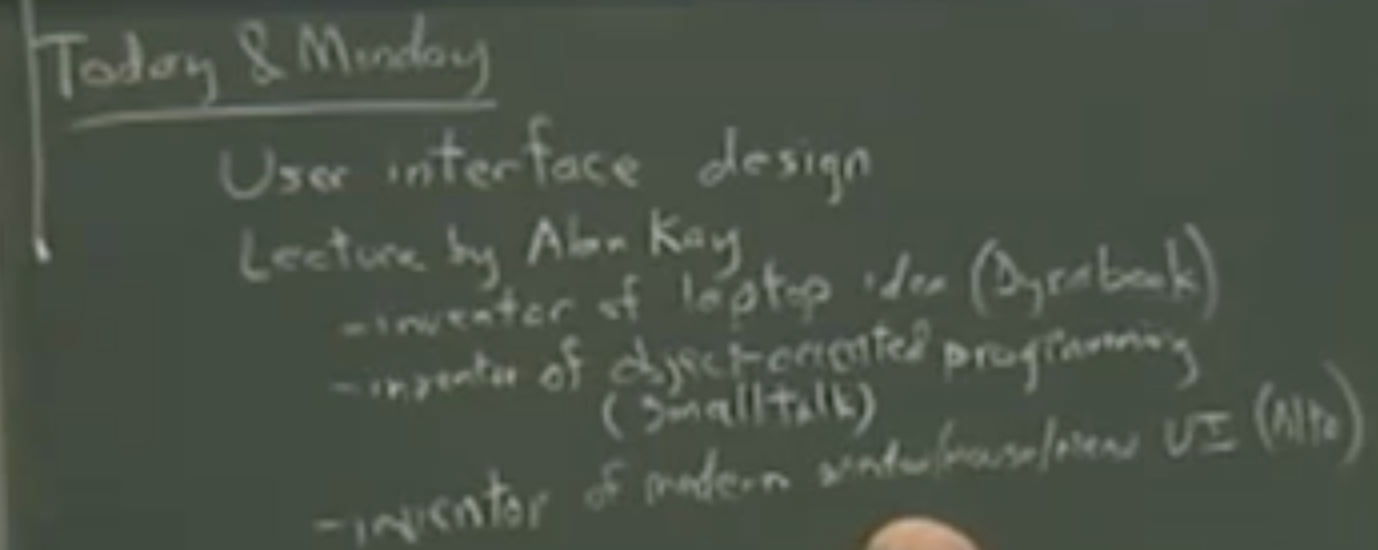 Today & Monday
User interface design
Lecture by Alan Kay
- inventor of laptop idea (Dynabook)
- inventor of object-oriented programming
(Smalltalk)
- inventor of modern window/mouse/menu UI (Alto)